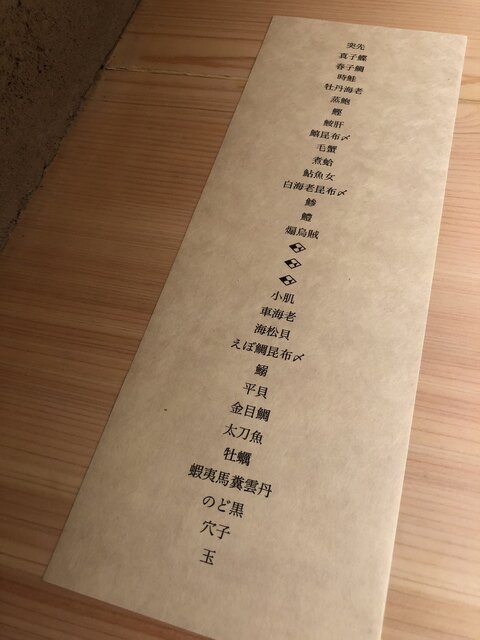 突先
真子鰈
春子鯛
時鮭
牡丹海老
蒸鮑
鰹
鮟肝
鰭昆布〆
毛蟹
煮蛤
鮎魚女
白海老昆布〆
鯵
鱧
煽烏賊
小肌
車海老
海松貝
えぼ鯛昆布〆
鰯
平貝
金目鯛
太刀魚
牡蠣
蝦夷馬糞雲丹
のど黒
穴子
玉